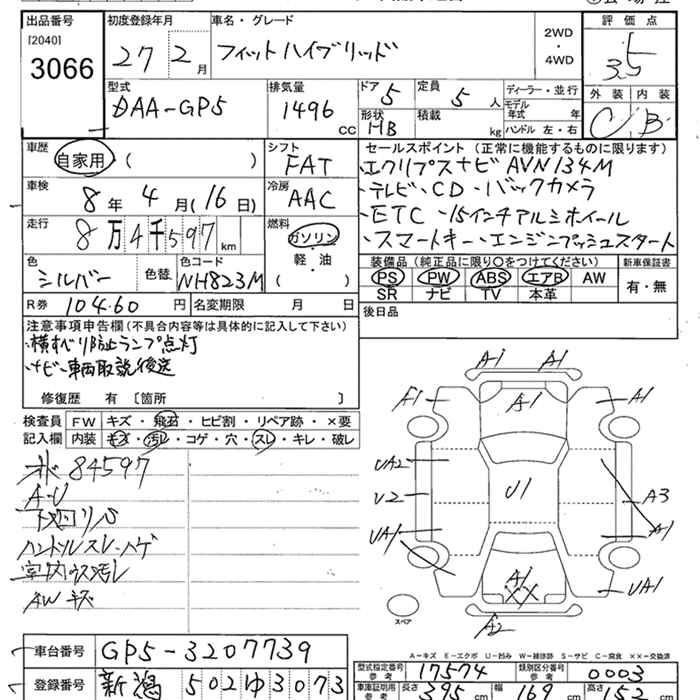 出品番号 初度登録年月 車名・グレード 2WD・4WD 評価点
[2040]
3066 27 2月 フィットハイブリッド 3.5
型式 排気量 ドア 5 定員 5人 ディーラー・並行 外装 内装
DAA-GP5 1496cc 形状 HB 積載 kg モデル年式 年 ハンドル 左・右 C B
車歴 自家用 ( ) シフト FAT
セールスポイント(正常に機能するものに限ります)
・エクリプスナビ AVN134M
車検 8年 4月(16日) 冷房 AAC
・テレビ・CD・バックカメラ
・ETC・15インチアルミホイール
走行 8万4千597km 燃料 ガソリン 軽・油 ( )
・スマートキー・エンジンプッシュスタート
色 シルバー 色替 色コード NH823M
装備品(純正品に限り〇をつけてください) 新車保証書
PS PW ABS エアB AW 有・無
SR ナビ TV 本革
R券 10460円 名変期限 月 日
後日品
注意事項申告欄(不具合内容等は具体的に記入して下さい)
・横すべり防止ランプ点灯
・ナビ・車両取説後送
修復歴 有 〔箇所 〕
検査員 FW キズ・飛石・ヒビ割・リペア跡・×要
記入欄 内装 キズ・汚レ・コゲ・穴・スレ・キレ・破レ
84597
A-U
下廻リサビ
ハンドルスレ・ハゲ
室内ウス汚レ
AWキズ
A1 A1
A1 A1 A1
UA2
U2 U1 A3
UA1 A1
A1 XX UA1
A2
スペア
A-キズ E-エクボ U-凹み W-補修跡 S-サビ C-腐食 ××-交換済
車台番号 GP5-3207739
型式指定番号 参考 17574 類別区分番号 参考 0003
登録番号 新潟 502 ゆ 3073
車庫証明用 参考 長さ 395cm 幅 169cm 高さ 152cm